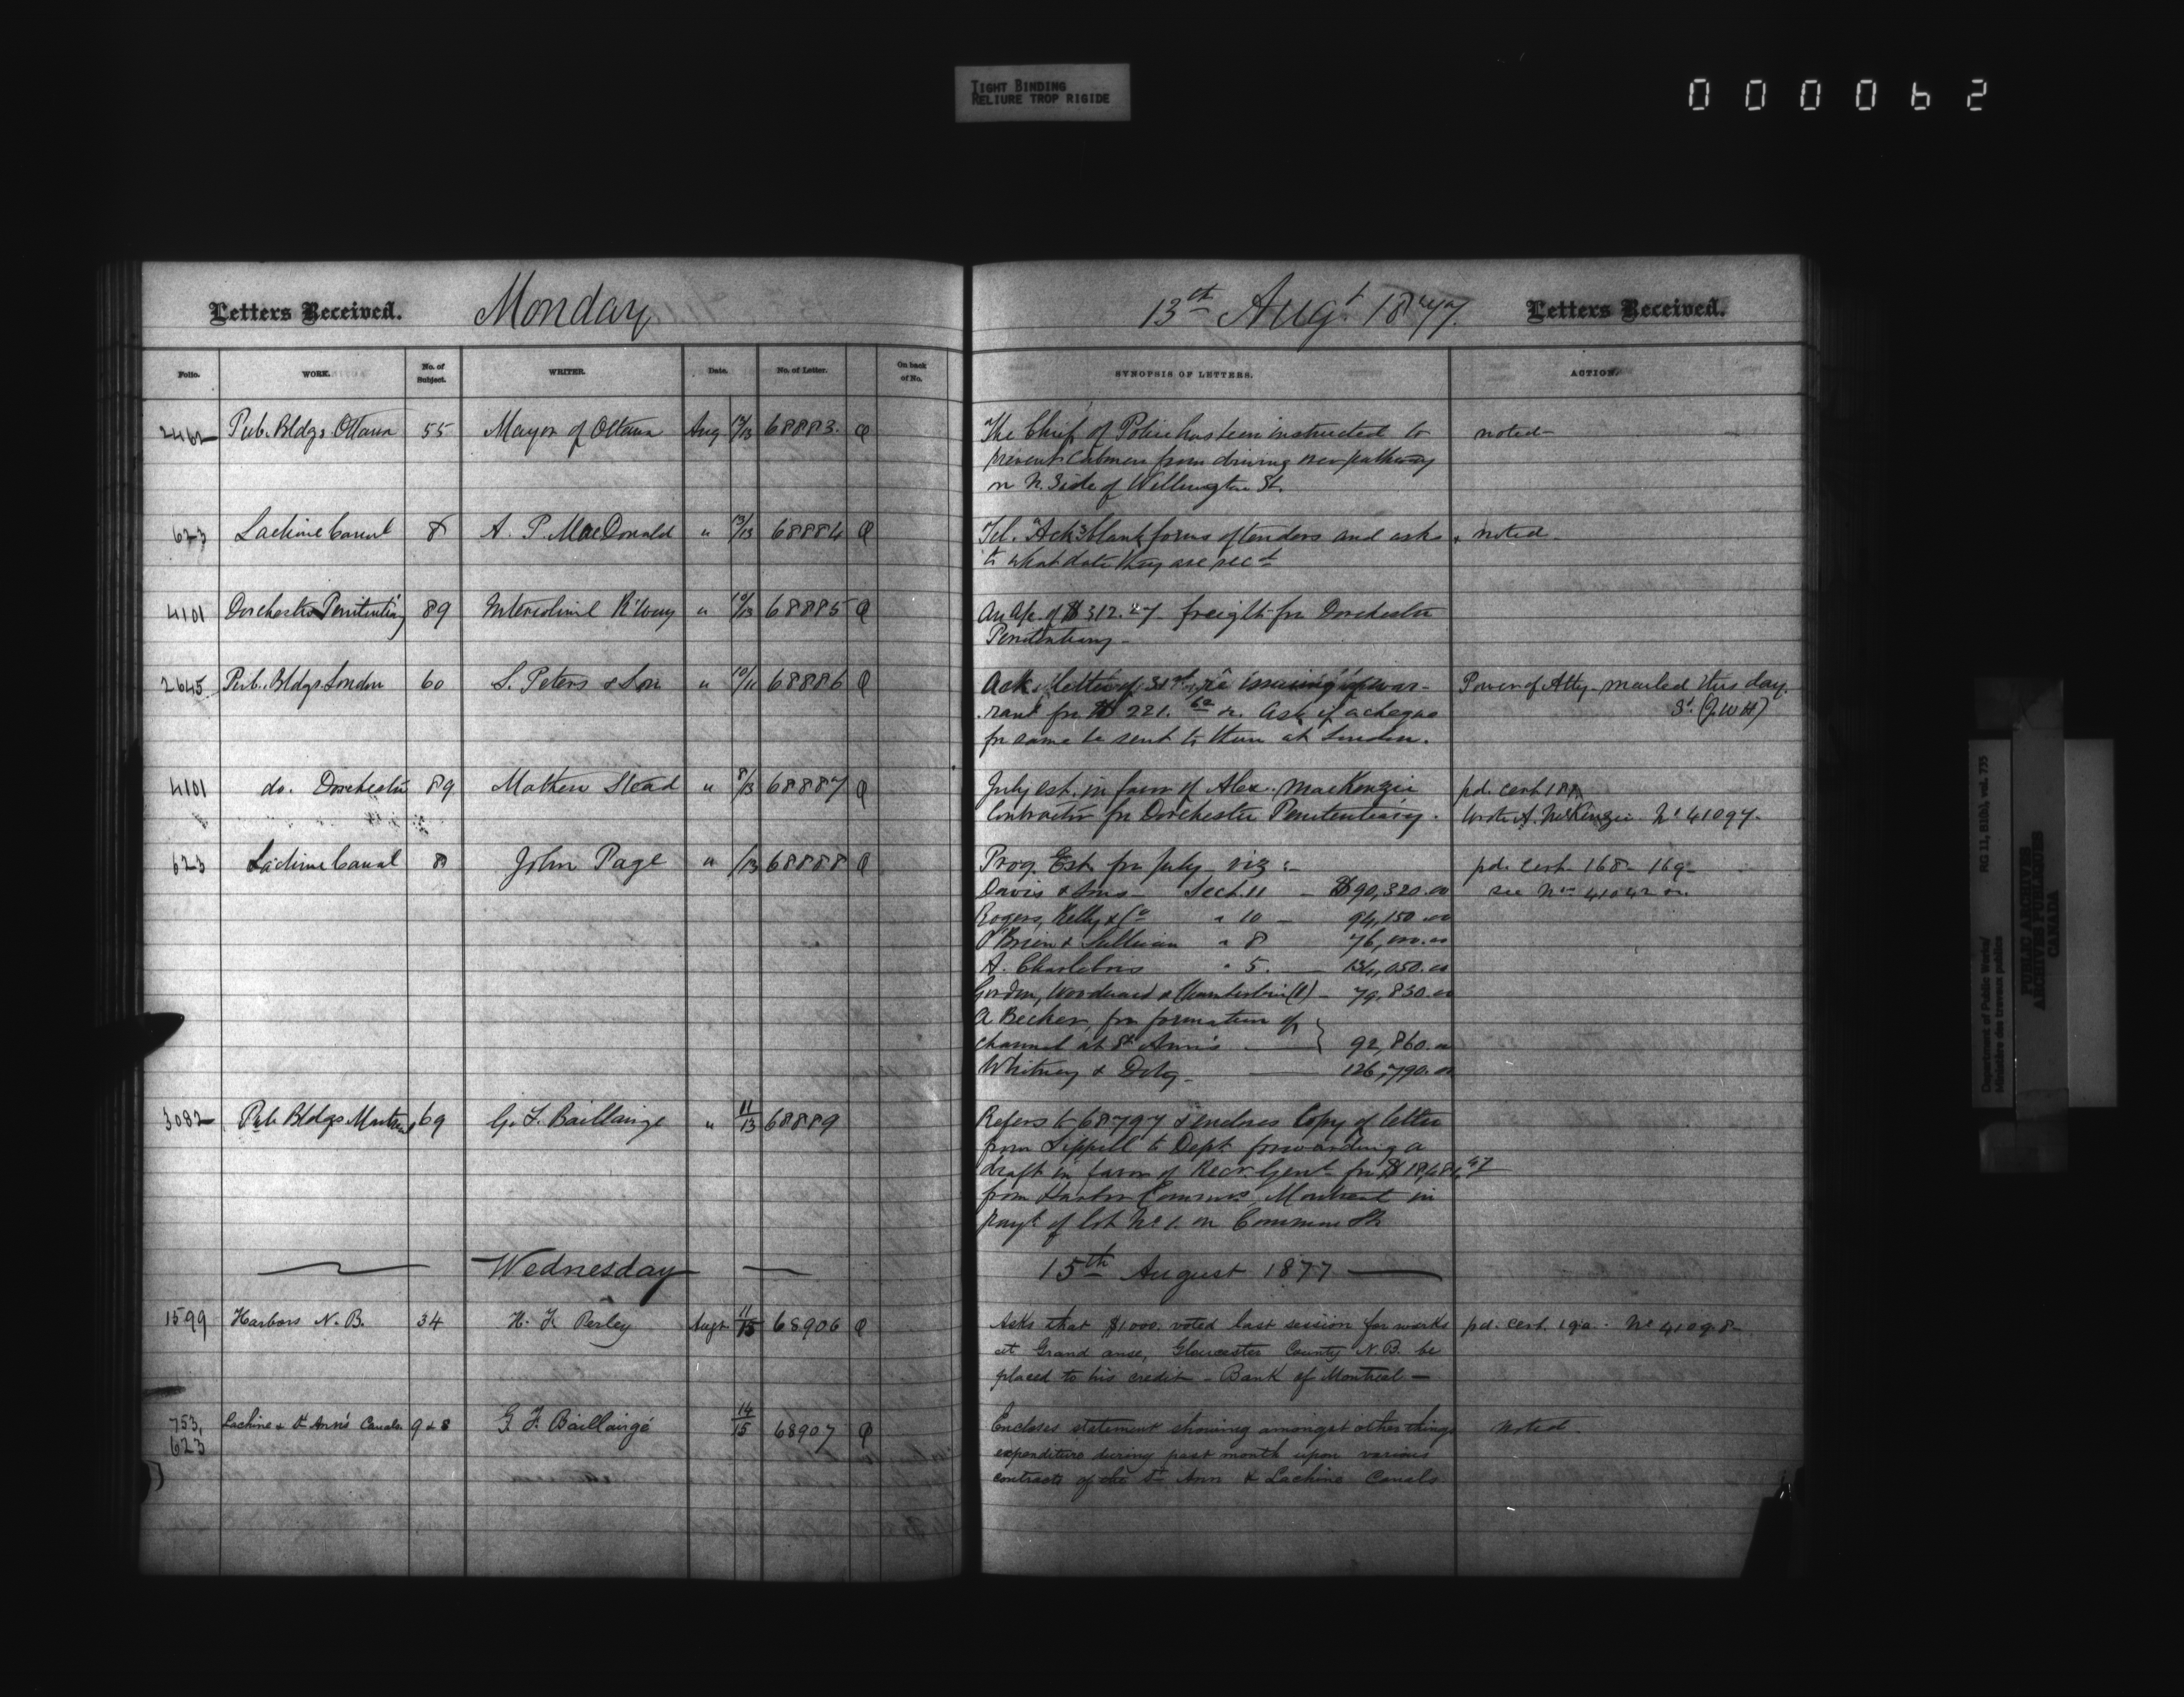 TIGHT BINDING
RELIURE TROP RIGIDE
000062
Letters Received. Monday 13th Augt 1877. Letters Received.
Folio. WORK. No. of Subject. WRITER. Date. No. of Letter. On back of No. SYNOPSIS OF LETTERS. ACTION.
2462 Pub. Bldgs Ottawa 55 Mayor of Ottawa Aug 13 68883. The Chief of Police has been instructed to noted
prevent Cabmen from driving over pathway
on N. Side of Wellington St.
623 Lachine Canal 8 A. P. MacDonald " 13/13 68884 Tel. Acks blank forms of tenders and asks noted
to what date they are recd
4101 Dorchester Penitentiary 89 Intercolonial R'lway " 10/13 68885 An a/c. of $312.27 freight for Dorchester
Penitentiary
2645 Pub. Bldgs London 60 S. Peters & Son " 10/11 68886 Acks letter of 31st re issuing of war- Power of Atty. mailed this day.
rant for $221. &c. Ask if a cheque (J.W.H)
for same be sent to them at London.
4101 do. Dorchester 89 Mathew Stead " 8/13 68887 July est. in favor of Alex. MacKenzie pd. cert 188
Contractor for Dorchester Penitentiary. Wrote A. McKenzie No 41097.
623 Lachine Canal 8 John Page " /13 68888 Prog. Est. for July viz :- pd. cert. 168 - 169
Davis & Sons Sect. 11 - $90,320.00 see No 41042 &c.
Rogers, Kelly & Co " 10 - 94,150.00
O'Brien & Sullivan " 8 76,000.00
A. Charlebois " 5. 134,050.00
Gordon, Woodward & Chamberlin (1) - 79,830.00
A Becker, for formation of
channel at St. Ann's 92,860.00
Whitney & Doty - 126,790.00
3082 Pub Bldgs Montreal 69 G. F. Baillairge " 11/13 68889 Refers to 68797 & encloses Copy of letter
from Sippell to Dept. forwarding a
draft in favor of Recr. Genl. for
from Harbor Commrs. Montreal in
payt of lot No 1. on Common St.
Wednesday 15th August 1877
1599 Harbors N. B. 34 H. F. Perley Augt 11/15 68906 Asks that $1000. voted last session for works pd. cert. 190. No 41098
at Grand anse, Gloucester County N.B. be
placed to his credit - Bank of Montreal -
753, 623 Lachine & St Ann's Canals. 9 & 8 G F. Baillairgé 14/15 68907 Encloses statement showing amongst other things noted.
expenditure during past month upon various
contracts of the St. Ann & Lachine Canals
Department of Public Works/
Ministère des travaux publics
RG 11, B1(b), vol. 735
PUBLIC ARCHIVES
ARCHIVES PUBLIQUES
CANADA